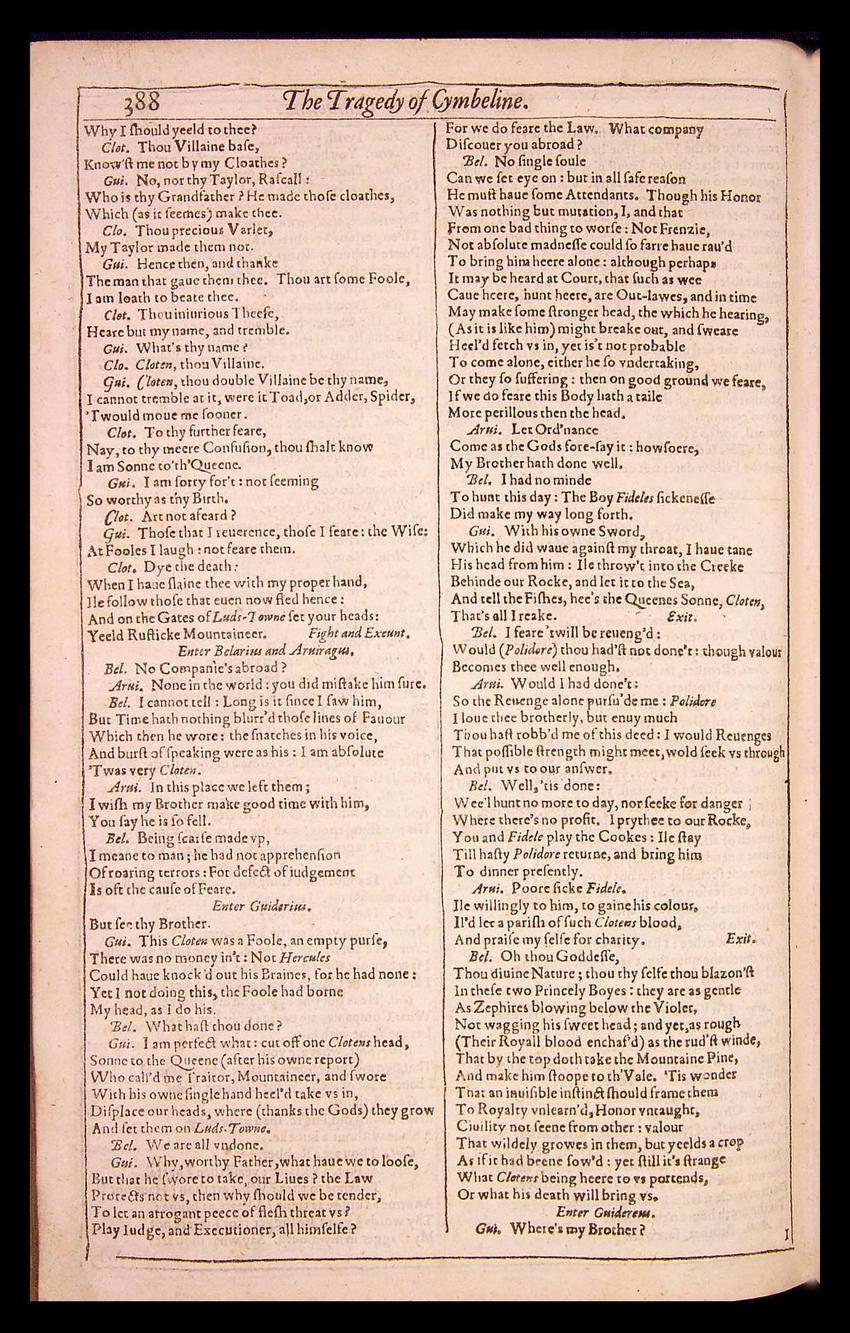 388
The Tragedy of Cymbeline.
Why I ſhould yeeld to thee?
Clot. Thou Villaine baſe,
Know'ſt me not by my Cloathes?
Gui. No, nor thy Taylor, Raſcall:
Who is thy Grandfather? He made thoſe cloathes,
Which (as it ſeemes) make thee.
Clo. Thou precious Varlet,
My Taylor made them not.
Gui. Hence then, and thanke
The man that gaue them thee. Thou art ſome Foole,
I am loath to beate thee.
Clot. Thou iniurious Theefe,
Heare but my name, and tremble.
Gui. What's thy name?
Clo. Cloten, thou Villaine.
Gui. Cloten, thou double Villaine be thy name,
I cannot tremble at it, were it Toad, or Adder, Spider,
'Twould moue me ſooner.
Clot. To thy further feare,
Nay, to thy meere Confuſion, thou ſhalt know
I am Sonne to'th'Queene.
Gui. I am ſorry for't: not ſeeming
So worthy as thy Birth.
Clot. Art not afeard?
Gui. Thoſe that I reuerence, thoſe I feare: the Wiſe:
At Fooles I laugh: not feare them.
Clot. Dye the death:
When I haue ſlaine thee with my proper hand,
Ile follow thoſe that euen now fled hence:
And on the Gates of Luds-Towne ſet your heads:
Yeeld Ruſticke Mountaineer. Fight and Exeunt.
Enter Belarius and Aruiragus.
Bel. No Companie's abroad?
Arui. None in the world: you did miſtake him ſure.
Bel. I cannot tell: Long is it ſince I ſaw him,
But Time hath nothing blurr'd thoſe lines of Fauour
Which then he wore: the ſnatches in his voice,
And burſt of ſpeaking were as his: I am abſolute
'Twas very Cloten.
Arui. In this place we left them;
I wiſh my Brother make good time with him,
You ſay he is ſo fell.
Bel. Being ſcarſe made vp,
I meane to man; he had not apprehenſion
Of roaring terrors: For defect of iudgement
Is oft the cauſe of Feare.
Enter Guiderius.
But ſee thy Brother.
Gui. This Cloten was a Foole, an empty purſe,
There was no money in't: Not Hercules
Could haue knock'd out his Braines, for he had none:
Yet I not doing this, the Foole had borne
My head, as I do his.
Bel. What haſt thou done?
Gui. I am perfect what: cut off one Clotens head,
Sonne to the Queene (after his owne report)
Who call'd me Traitor, Mountaineer, and ſwore
With his owne ſingle hand heel'd take vs in,
Diſplace our heads, where (thanks the Gods) they grow
And ſet them on Luds-Towne.
Bel. We are all vndone.
Gui. Why, worthy Father, what haue we to looſe,
But that he ſwore to take, our Liues? the Law
Protects not vs, then why ſhould we be tender,
To let an arrogant peece of fleſh threat vs?
Play Iudge, and Executioner, all himſelfe?
For we do feare the Law. What company
Diſcouer you abroad?
Bel. No ſingle ſoule
Can we ſet eye on: but in all ſafe reaſon
He muſt haue ſome Attendants. Though his Honor
Was nothing but mutation, I, and that
From one bad thing to worſe: Not Frenzie,
Not abſolute madneſſe could ſo farre haue rau'd
To bring him heere alone: although perhaps
It may be heard at Court, that ſuch as wee
Caue heere, hunt heere, are Out-lawes, and in time
May make ſome ſtronger head, the which he hearing,
(As it is like him) might breake out, and ſweare
Heel'd fetch vs in, yet is't not probable
To come alone, either he ſo vndertaking,
Or they ſo ſuffering: then on good ground we feare,
If we do feare this Body hath a taile
More perillous then the head.
Arui. Let Ord'nance
Come as the Gods fore-ſay it: howſoere,
My Brother hath done well.
Bel. I had no minde
To hunt this day: The Boy Fideles ſickeneſſe
Did make my way long forth.
Gui. With his owne Sword,
Which he did waue againſt my throat, I haue tane
His head from him: Ile throw't into the Creeke
Behinde our Rocke, and let it to the Sea,
And tell the Fiſhes, hee's the Queenes Sonne, Cloten,
That's all I reake. Exit.
Bel. I feare 'twill be reueng'd:
Would (Polidore) thou had'ſt not done't: though valour
Becomes thee well enough.
Arui. Would I had done't:
So the Reuenge alone purſu'de me: Polidore
I loue thee brotherly, but enuy much
Thou haſt robb'd me of this deed: I would Reuenges
That poſſible ſtrength might meet, wold ſeek vs through
And put vs to our anſwer.
Bel. Well, 'tis done:
Wee'l hunt no more to day, nor ſeeke for danger
Where there's no profit. I prythee to our Rocke,
You and Fidele play the Cookes: Ile ſtay
Till haſty Polidore returne, and bring him
To dinner preſently.
Arui. Poore ſicke Fidele.
Ile willingly to him, to gaine his colour,
Il'd let a pariſh of ſuch Clotens blood,
And praiſe my ſelfe for charity. Exit.
Bel. Oh thou Goddeſſe,
Thou diuine Nature; thou thy ſelfe thou blazon'ſt
In theſe two Princely Boyes: they are as gentle
As Zephires blowing below the Violet,
Not wagging his ſweet head; and yet, as rough
(Their Royall blood enchaf'd) as the rud'ſt winde,
That by the top doth take the Mountaine Pine,
And make him ſtoope to th'Vale. 'Tis wonder
That an inuiſible inſtinct ſhould frame them
To Royalty vnlearn'd, Honor vntaught,
Ciuility not ſeene from other: valour
That wildely growes in them, but yeelds a crop
As if it had beene ſow'd: yet ſtill it's ſtrange
What Clotens being heere to vs portends,
Or what his death will bring vs.
Enter Guidereus.
Gui. Where's my Brother?
I